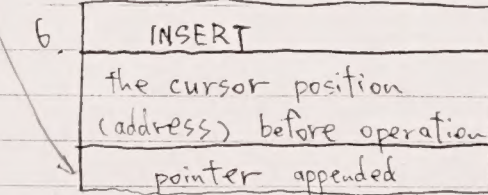 6. INSERT
the cursor position
(address) before operation
pointer appended